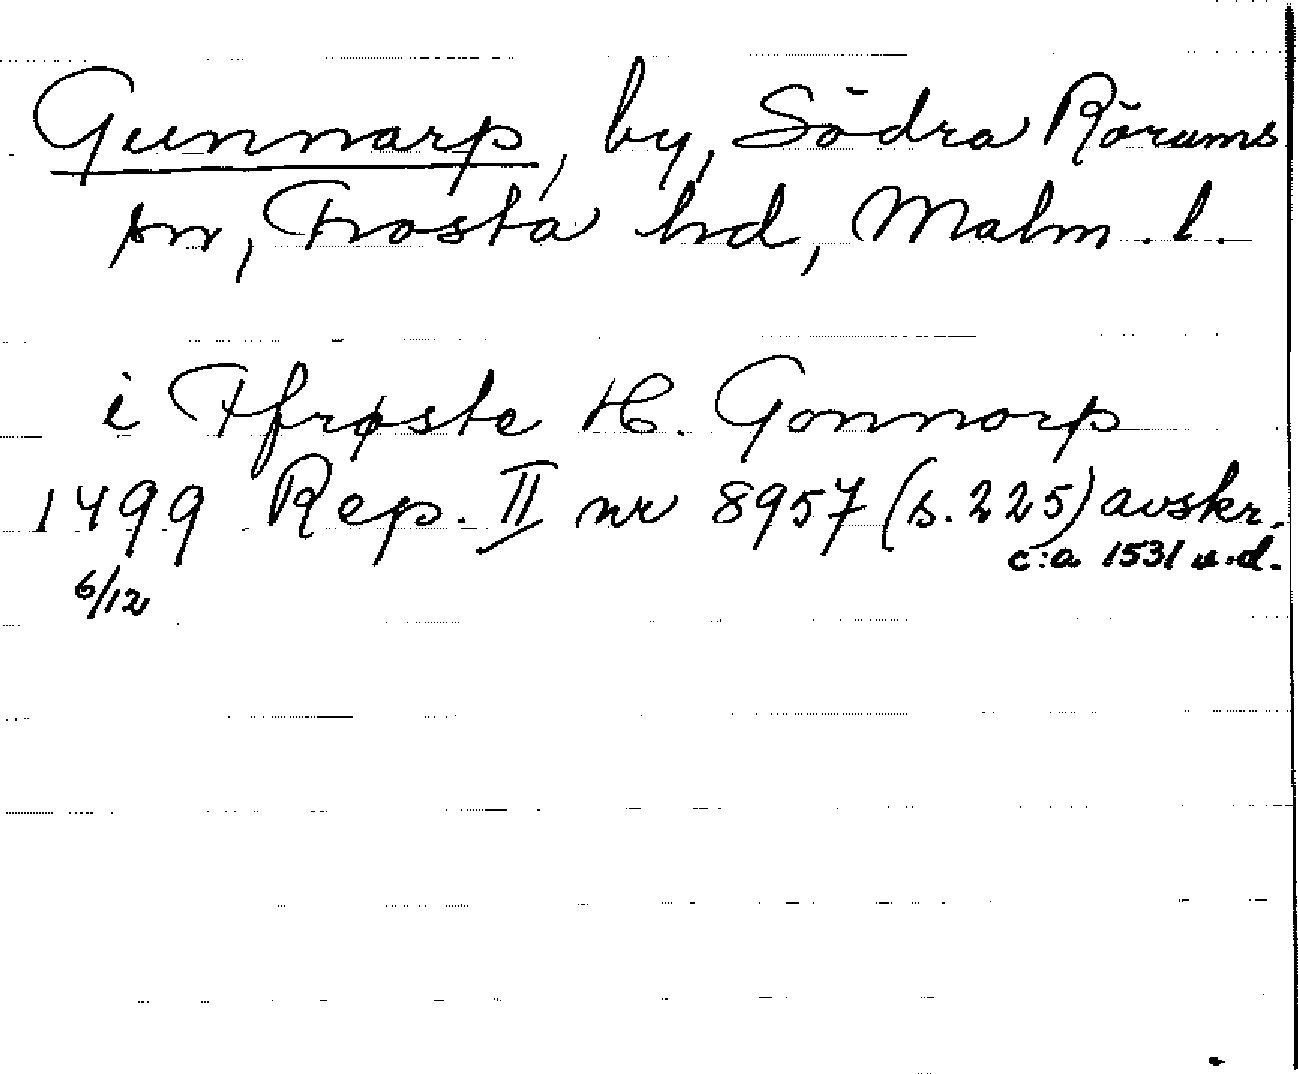 Gunnarp, by, Södra Rörums
sn, Frosta hd, Malm. l.
i Ffrøste H. Gonnorp
1499 Rep. II nr 8957 (s. 225) avskr.
c:a 1531 u.d.
6/12